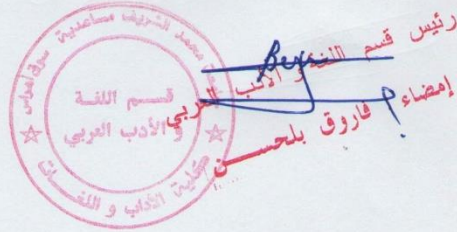 جامعة محمد الشريف مساعدية سوق أهراس
قسم اللغة
و الأدب العربي
كلية الآداب و اللغات
رئيس قسم اللغة و الأدب العربي
إمضاء فاروق بلحسن